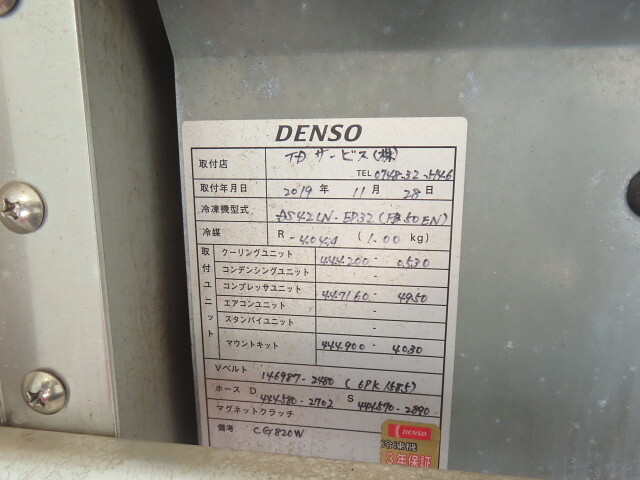 DENSO
取付店 サービス(株)
TEL 0748-32-5146
取付年月日 2019年 11月 28日
冷凍機型式 AS42LN-EP32(FB50EN)
冷媒 R -404A (1.00 kg)
取付ユニット
クーリングユニット 444200- 0530
コンデンシングユニット -
コンプレッサユニット 447160- 4950
エアコンユニット -
スタンバイユニット -
マウントキット 444900- 4030
Vベルト 146987-2480 (6PK
ホース D 444580-2702 S 444570-2890
マグネットクラッチ
備考 CG820W
DENSO
冷凍機
3年保証